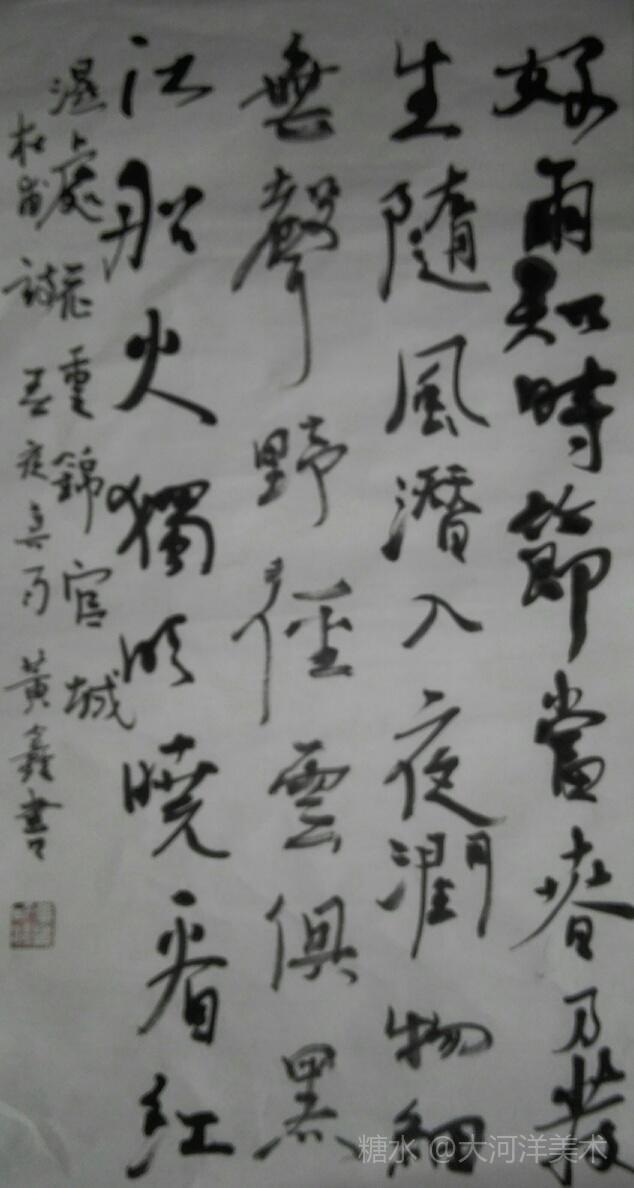 好雨知時節當春乃發
生隨風潛入夜潤物細
無聲野徑雲俱黑
江船火獨明曉看紅
濕處花重錦官城
杜甫詩 黃鑫書
糖水 @大河洋美术